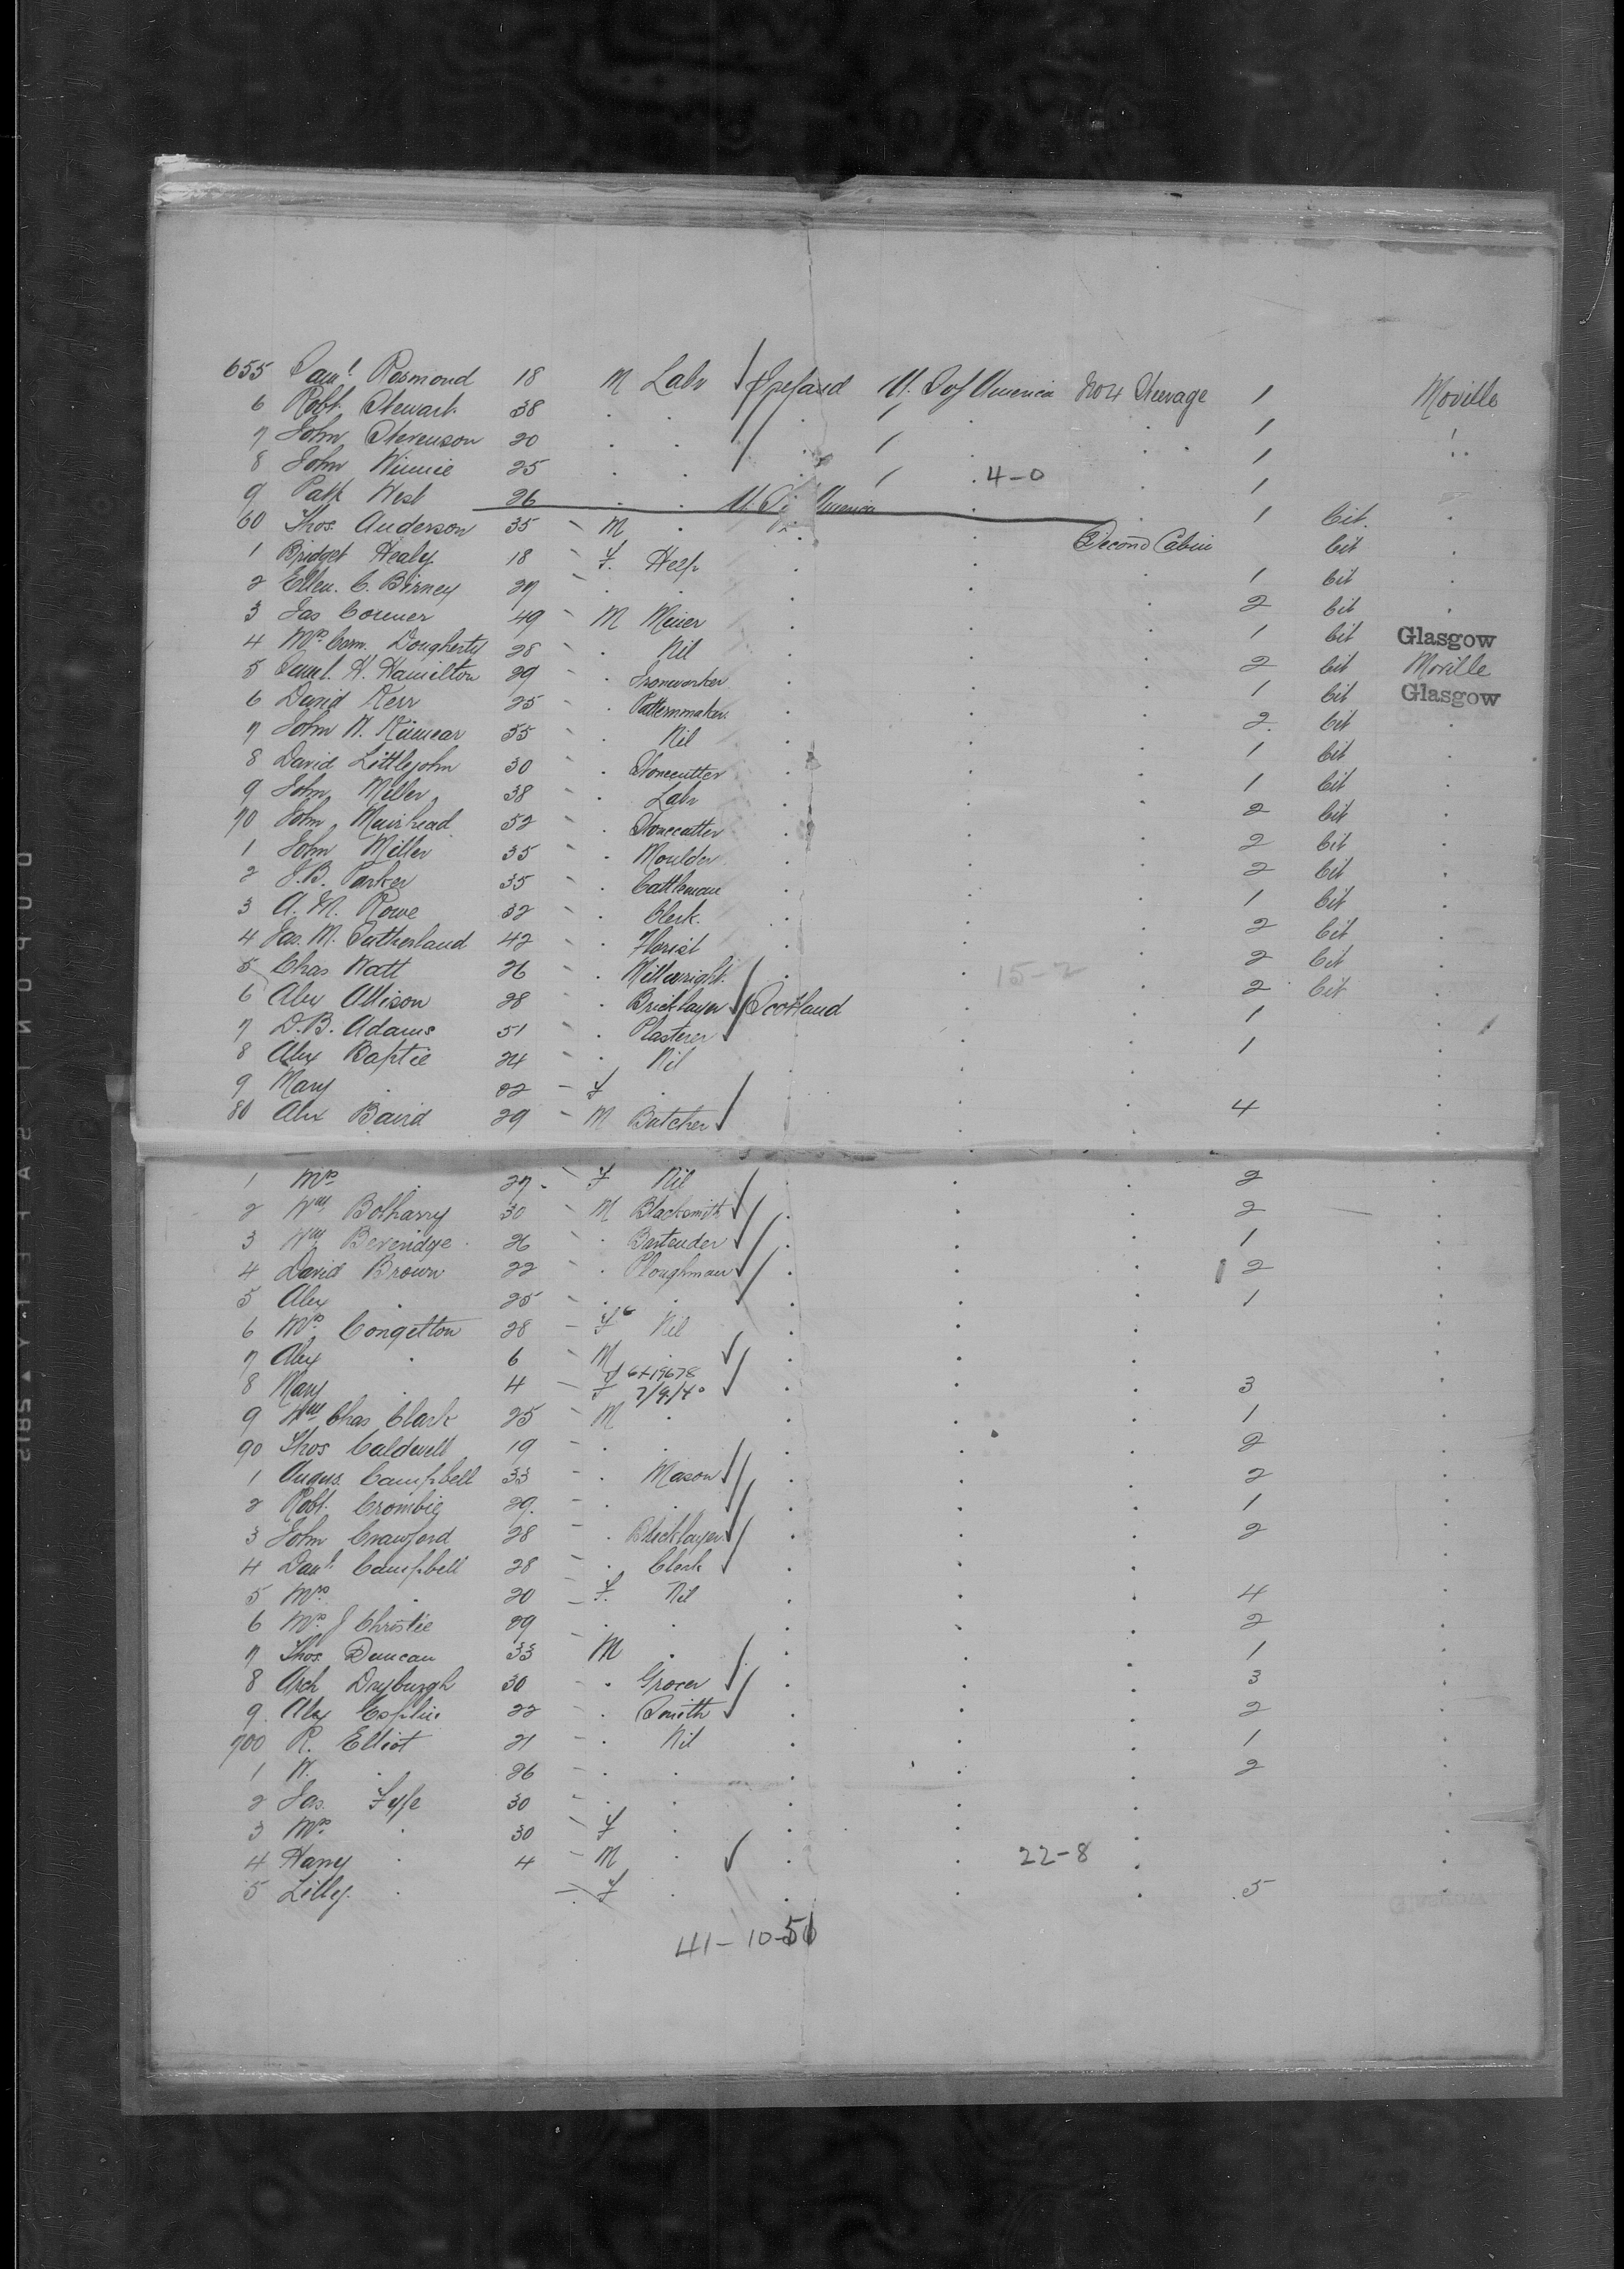 655 Saml. Rosmond 18 M Labr Ireland U. S of America No 4 Steerage 1 Moville
6 Robt. Stewart 38 . . . 1 "
7 John Stevenson 20 . . . 1 "
8 John Winnie 25 . . 4-0 . 1
9 Patk West 26 . . U. S. America . 1 Cit. .
60 Thos. Anderson 35 - M . . . Second Cabin Cit .
1 Bridget Healy 18 - F. Help . . 1 Cit .
2 Ellen. C. Birney 27 - . . . . . 2 Cit .
3 Jas Conner 49 - M Miner . . . 1 Cit Glasgow
4 Mrs. Dougherty 28 - . Nil . . . 2 Cit Moville
5 Saml. H. Hamilton 29 - . Ironworker . . . 1 Cit Glasgow
6 David Kerr 25 - . Patternmaker . . . 2 Cit .
7 John W. Kinnear 35 - . Nil . . . 1 Cit .
8 David Littlejohn 30 - . Stonecutter . . . 1 Cit .
9 John Miller 38 - . Labr . . . 2 Cit .
70 John Muirhead 52 - . Stonecutter . . . 2 Cit .
1 John Miller 35 - . Moulder . . . 2 Cit .
2 J.B. Parker 35 - . Cattleman . . . 1 Cit .
3 A. M. Rowe 32 - . Clerk. . . . 2 Cit .
4 Jas. M. Sutherland 42 - . Florist . . . 2 Cit .
5 Chas Watt 26 - . Millwright . . 15-2 . 2 Cit .
6 Alex Allison 28 - . Bricklayer Scotland . . 1 .
7 D.B. Adams 51 - . Plasterer . . . 1 .
8 Alex Baptie 24 - . Nil . . . .
9 Mary . 22 - F . . . . 4 .
80 Alex Baird 29 - M Butcher . . . .
1 Mrs . 27 - F Nil . . . 2 .
2 Wm Botharry 30 - M Blacksmith . . . 2 .
3 Wm Beveridge 26 - . Bartender . . . 1 .
4 David Brown 22 - . Ploughman . . . 2 .
5 Alex . 25 - . . . . . 1 .
6 Mrs. Congetton 28 - F Nil . . . .
7 Alex . 6 - M . . . . .
8 Mary . 4 - F 6+19678 7/9/40 . . . 3 .
9 Wm Chas Clark 25 - M . . . . 1 .
90 Thos Caldwell 19 - . . . . . 2 .
1 Angus Campbell 33 - . Mason . . . 2 .
2 Robt. Crombie 29. - . . . . . 1 .
3 John Crawford 28 - . Bricklayer . . . 2 .
4 Danl. Campbell 28 - . Clerk . . . .
5 Mrs. . 20 - F. Nil . . . 4 .
6 Mrs. J Christie 29 - . . . . . 2 .
7 Thos. Duncan 33 - M . . . . 1 .
8 Arch Dryburgh 30 - . Grocer . . . 3 .
9. Alex Esplin 22 - . Smith . . . 2 .
700 R. Elliot 21 - . Nil . . . 1 .
1 W. . 26 - . . . . . 2 .
2 Jas. Fyfe 30 - . . . . . .
3 Mrs. . 30 - F . . . . .
4 Harry . 4 - M . . . 22-8 . .
5 Lilly . - F . . . . 5 .
41-10-51